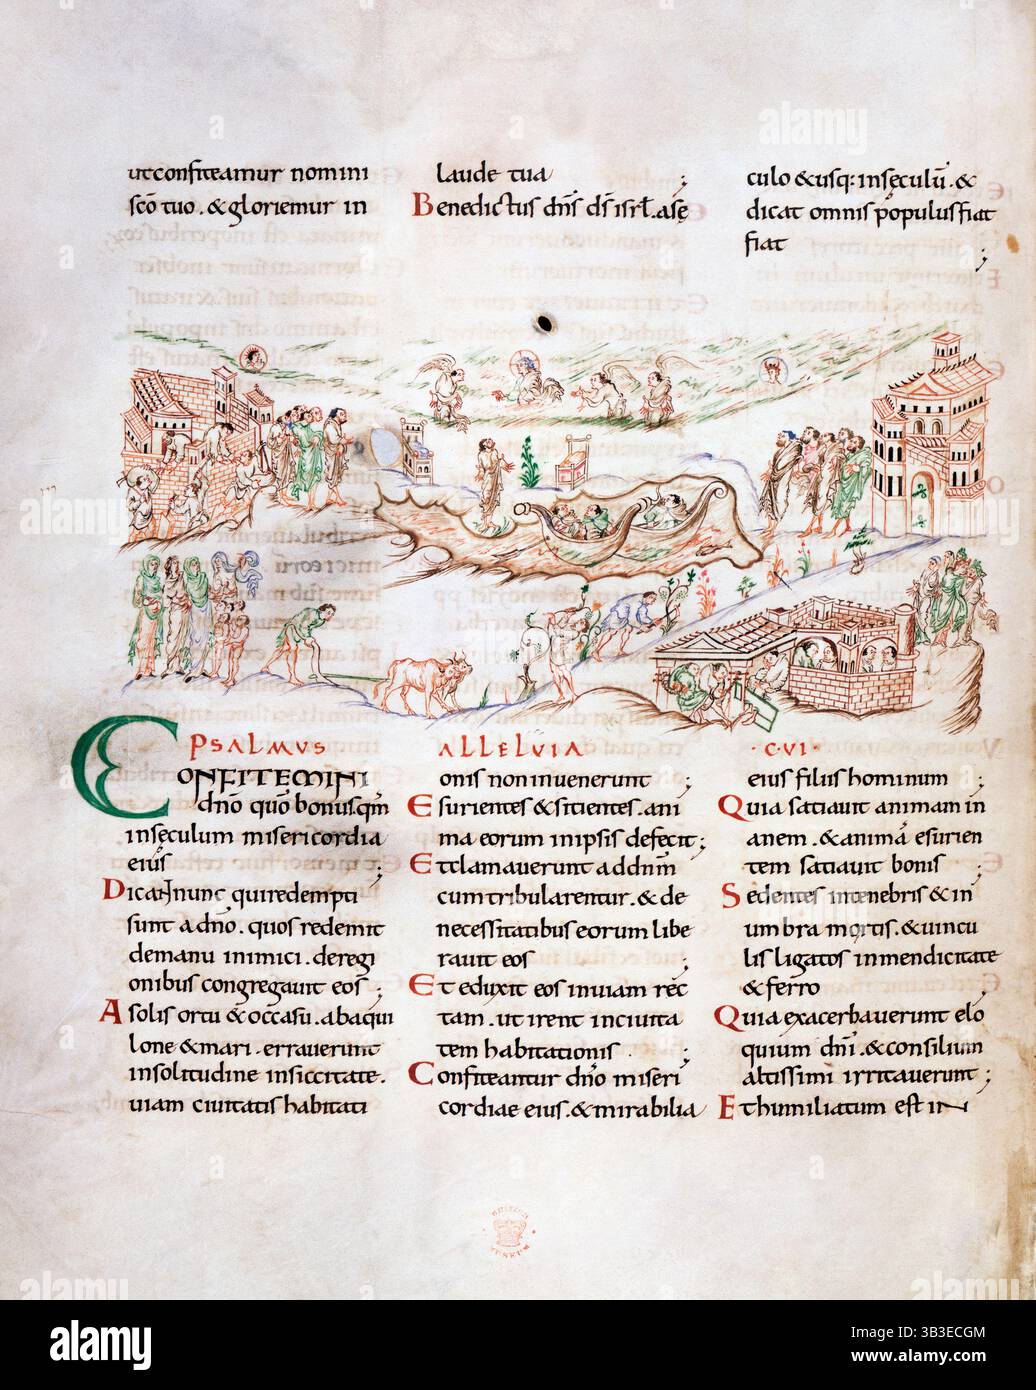 ut confiteamur nomini
sco tuo . & gloriemur in
laude tua ;
Benedictus dns ds isrl . a se
culo & usq: in seculu . &
dicat omnis populus fiat
fiat ;
PSALMUS ALLELUIA · C · VI ·
CONFITEMINI
dno quo bonus . qm
in seculum misericordia
eius ;
Dicant nunc qui redempti
sunt a dno . quos redemit
de manu inimici . de regi
onibus congregavit eos ;
A solis ortu & occasu . ab aqui
lone & mari . erraverunt
in solitudine in siccitate .
viam civitatis habitati
onis non invenerunt ;
Esurientes & sitientes . ani
ma eorum in ipsis defecit ;
Et clamaverunt ad dnm
cum tribularentur . & de
necessitatibus eorum libe
ravit eos ;
Et eduxit eos in viam rec
tam . ut irent in civita
tem habitationis ;
Confiteantur dno miseri
cordiae eius . & mirabilia
eius filiis hominum ;
Quia satiavit animam in
anem . & anima esurien
tem satiavit bonis ;
Sedentes in tenebris & in
umbra mortis . & vincu
lis ligatos in mendicitate
& ferro ;
Quia exacerbaverunt elo
quium dni . & consilium
altissimi irritaverunt ;
Et humiliatum est in
BRITISH MUSEUM
alamy
Image ID: 2B3ECGM
www.alamy.com